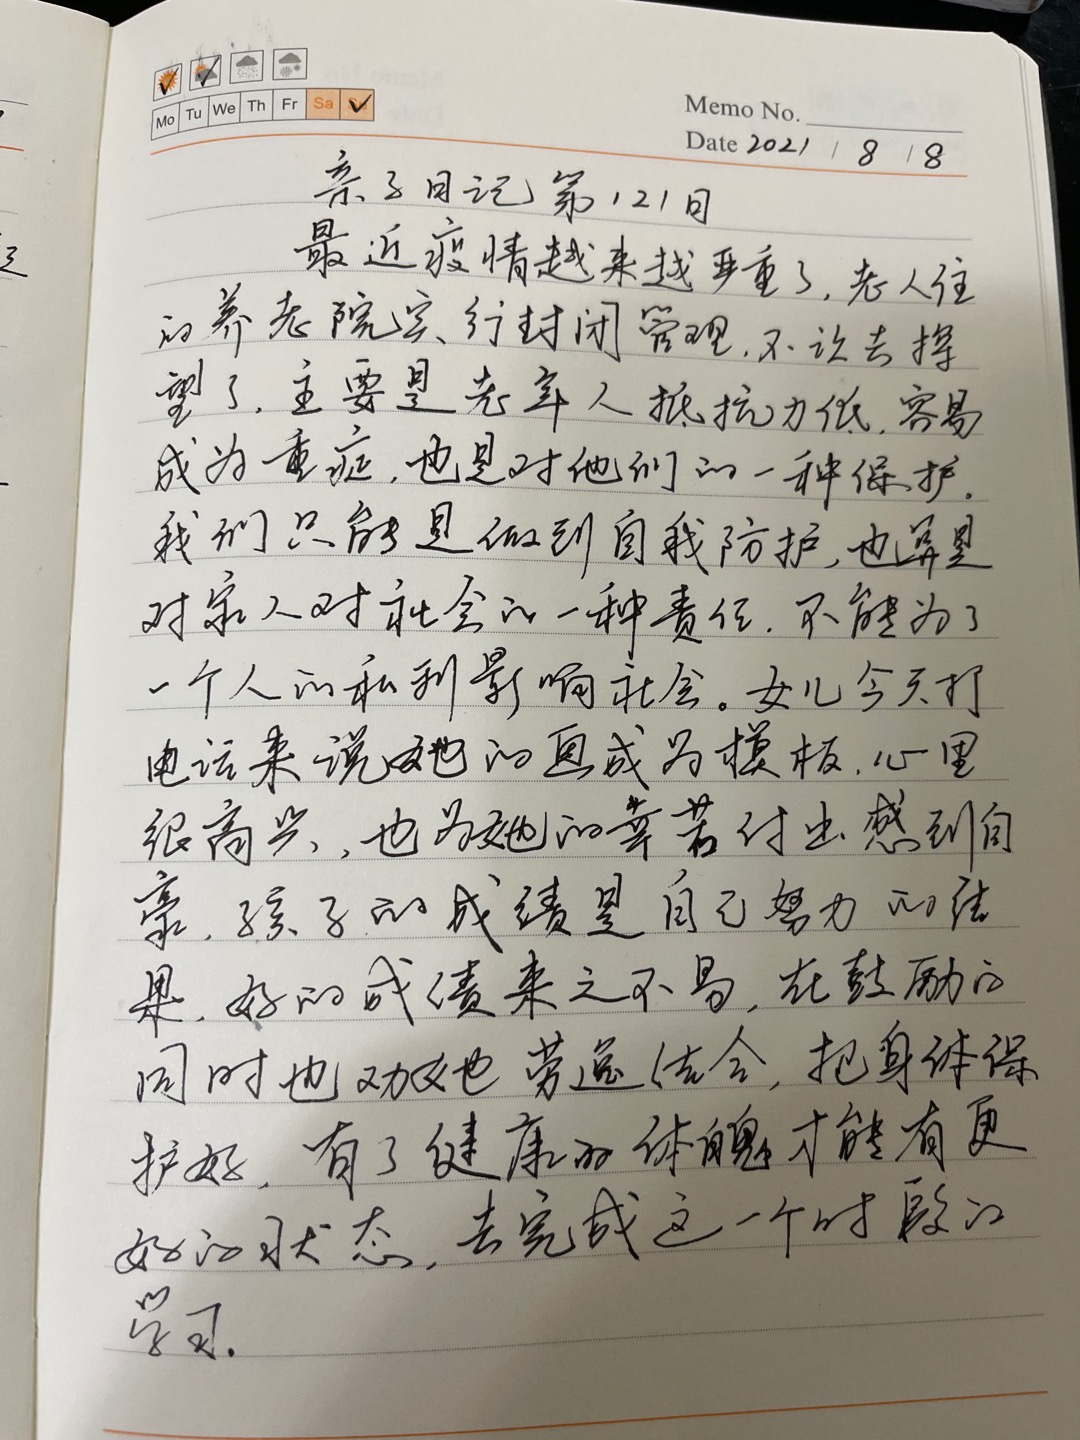 Mo Tu We Th Fr Sa
Memo No.
Date 2021 / 8 / 8
亲子日记第121日
最近疫情越来越严重了,老人住
的养老院实行封闭管理,不让去探
望了,主要是老年人抵抗力低,容易
成为重症,也是对他们的一种保护,
我们只能是做到自我防护,也算是
对家人对社会的一种责任,不能为了
一个人的私利影响社会。女儿今天打
电话来说她的画成为模板,心里
很高兴,也为她的辛苦付出感到自
豪,孩子的成绩是自己努力的结
果,好的成绩来之不易,在鼓励的
同时也劝她劳逸结合,把身体保
护好,有了健康的体魄才能有更
好的状态,去完成这一个时段的
学习.